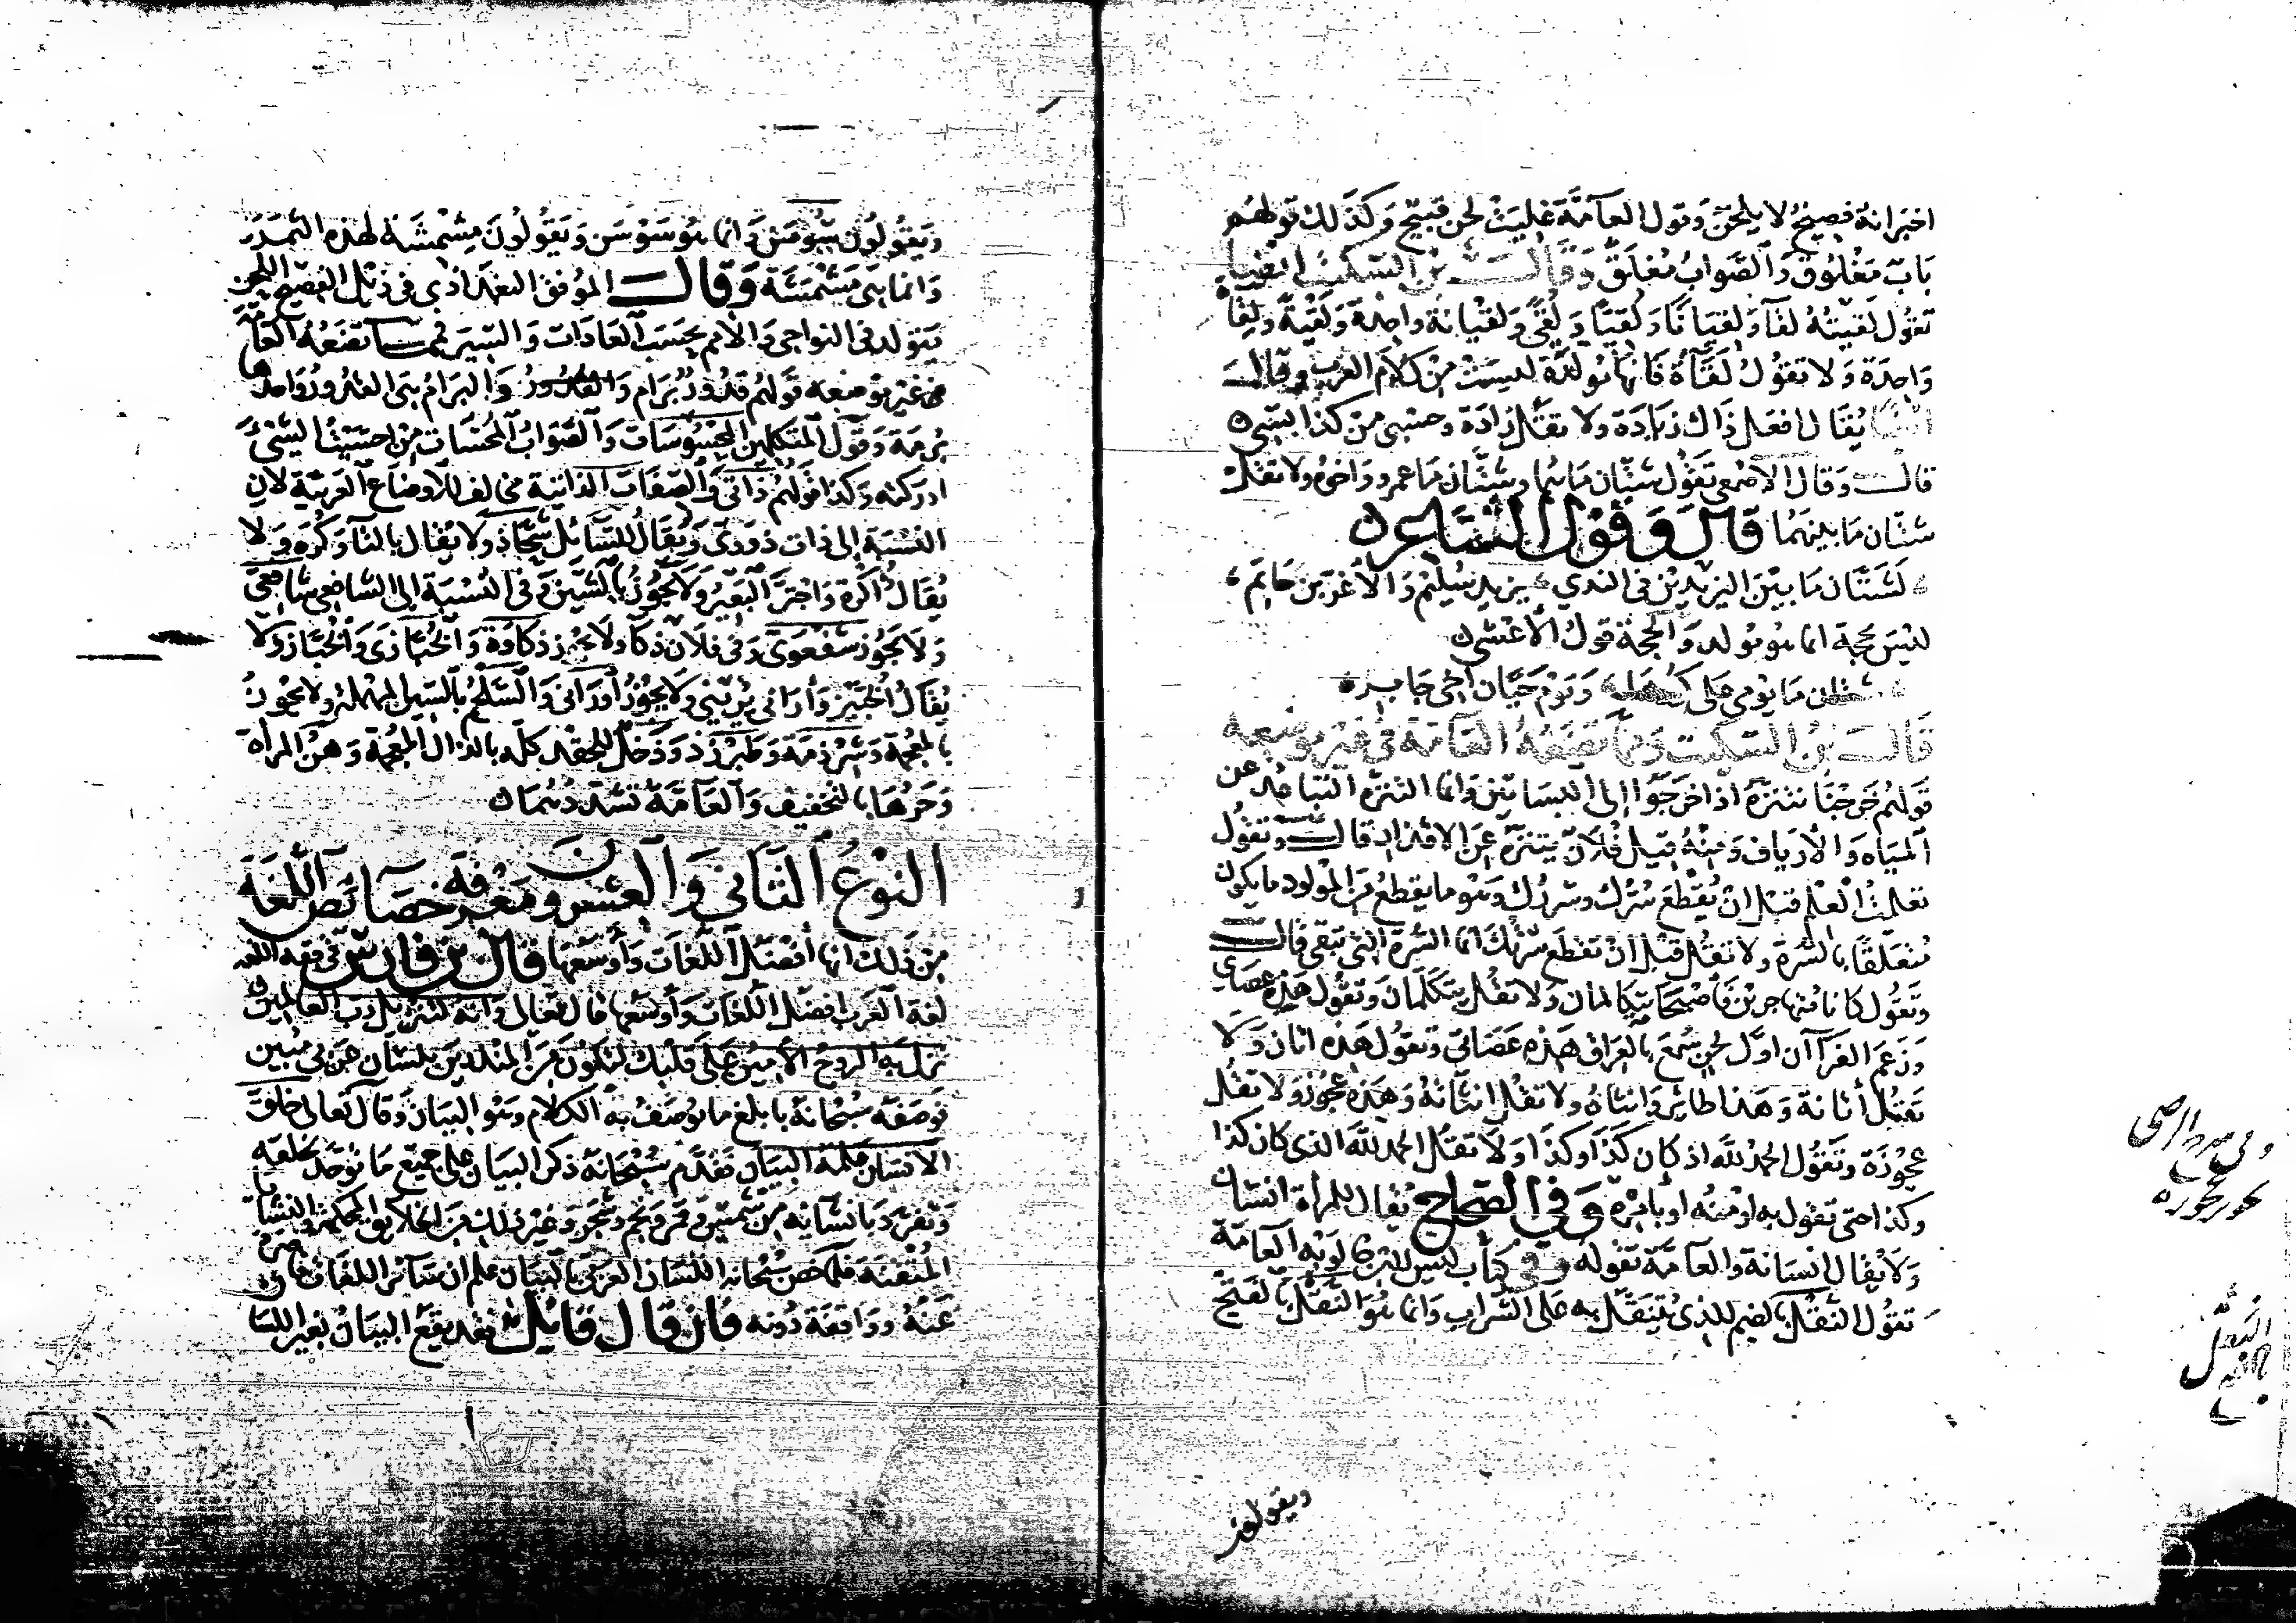 اخبر انه فصيح لا يلحن وقول العامة غليت لحن قبيح وكذلك قولهم
باب مغلوق والصواب مغلق وقال بن السكيت ايضا
تقول لقيته لقاء ولقيانا ولقيا ولقى ولقيانة واحدة ولقية ولقاءة
واحدة ولا تقول لقاة فانها مولدة ليست من كلام العرب وقال
ايضا يقال افعل ذاك زيادة ولا تقل زادة وحسبي من كذا بسي
قال وقال الاصمعي تقول شتان ماهما وشتان ما عمرو واخوه ولا تقل
شتان ما بينهما قال وقول الشاعر
لشتان ما بين اليزيدين في الندي يزيد سليم والاغر بن حاتم
ليس بحجة انما هو مولد والحجة قول الاعشى
شتان ما يومي على كورها ويوم حيان اخي جابر
قال بن السكيت ومما تضعه العامة في غير موضعه
قولهم خرجنا نتنزه اذا خرجوا الى البساتين وانما التنزه التباعد عن
المياه والارياف ومنه قيل فلان يتنزه عن الاقذار قال وتقول
تعلمت العلم قبل ان يقطع سرك وسررك وهو ما يقطع من المولود مما يكون
متعلقا بالسرة ولا تقل قبل ان تقطع سرتك انما السرة التي تبقى قال
وتقول كانا متهاجرين فاصبحا يتكالمان ولا تقل يتكلمان وتقول هذه عصاي
وزعم الفراء ان اول لحن سمع بالعراق هذه عصاتي وتقول هذه اتان ولا
تقل أتانة وهذا طائر وانثاه ولا تقل انثاته وهذه عجوز ولا تقل
عجوزة وتقول الحمد لله اذ كان كذا وكذا ولا تقل الحمد لله الذي كان كذا
وكذا حتى تقول به او منه او بامره وفي الصحاح يقال للمراة انسان
ولا يقال انسانة والعامة تقوله وفي كتاب ليس لابن خالويه العامة
تقول النقل بالضم للذي يتنقل به على الشراب وانما هو النقل بالفتح
ويقولون
ويقولون سوسن وانما هو سوسن ويقولون مشمشة لهذه الثمرة
وانما هي مشمشة وقال الموفق البغدادي في ذيل الفصيح اللحن
يتولد في النواحي والامم بحسب العادات والسير فمما تضعه العامة
في غير موضعه قولهم قدور برام والقدور والبرام هي القدور واحدها
برمة وقول المتكلمين المحسوسات والصواب المحسات من احسست الشيء
ادركته وكذا قولهم ذاتي والصفات الذاتية مخالف للاوضاع العربية لان
النسبة الى ذات ذووى ويقال للسائل شحاذ ولا يقال بالثاء وكرة ولا
يقال اكرة واجتر البعير ولا يجوز بالشين وفي النسبة الى الشافعي شافعي
ولا يجوز شفعوى وفي فلان ذكاء ولا يجوز ذكاوة والخبازى والخباز ولا
يقال الخبيز وأراني يريني ولا يجوز أوراني والسلجم بالسين المهملة ولا يجوز
بالمعجمة وشرذمة وطبرزذ وذحل للحقد كله بالذال المعجمة وهن المراة
وحرها بالتخفيف والعامة تشددهما
النوع الثاني والعشرون معرفة خصائص اللغة
من ذلك انها أفضل اللغات وأوسعها قال بن فارس في فقه اللغة
لغة العرب افضل اللغات وأوسعها قال تعالى وانه لتنزيل رب العالمين
نزل به الروح الامين على قلبك لتكون من المنذرين بلسان عربي مبين
فوصفه سبحانه بابلغ ما يوصف به الكلام وهو البيان وقال تعالى خلق
الانسان علمه البيان فقدم سبحانه ذكر البيان على جميع ما توحد بخلقه
وتفرد بانشائه من شمس وقمر ونجم وشجر وغير ذلك من الخلايق المحكمة والنشايا
المتقنة فلما خص سبحانه اللسان العربي بالبيان علم ان سائر اللغات قاصرة
عنه وواقعة دونه فان قال قائل فقد يقع البيان بغير اللسان